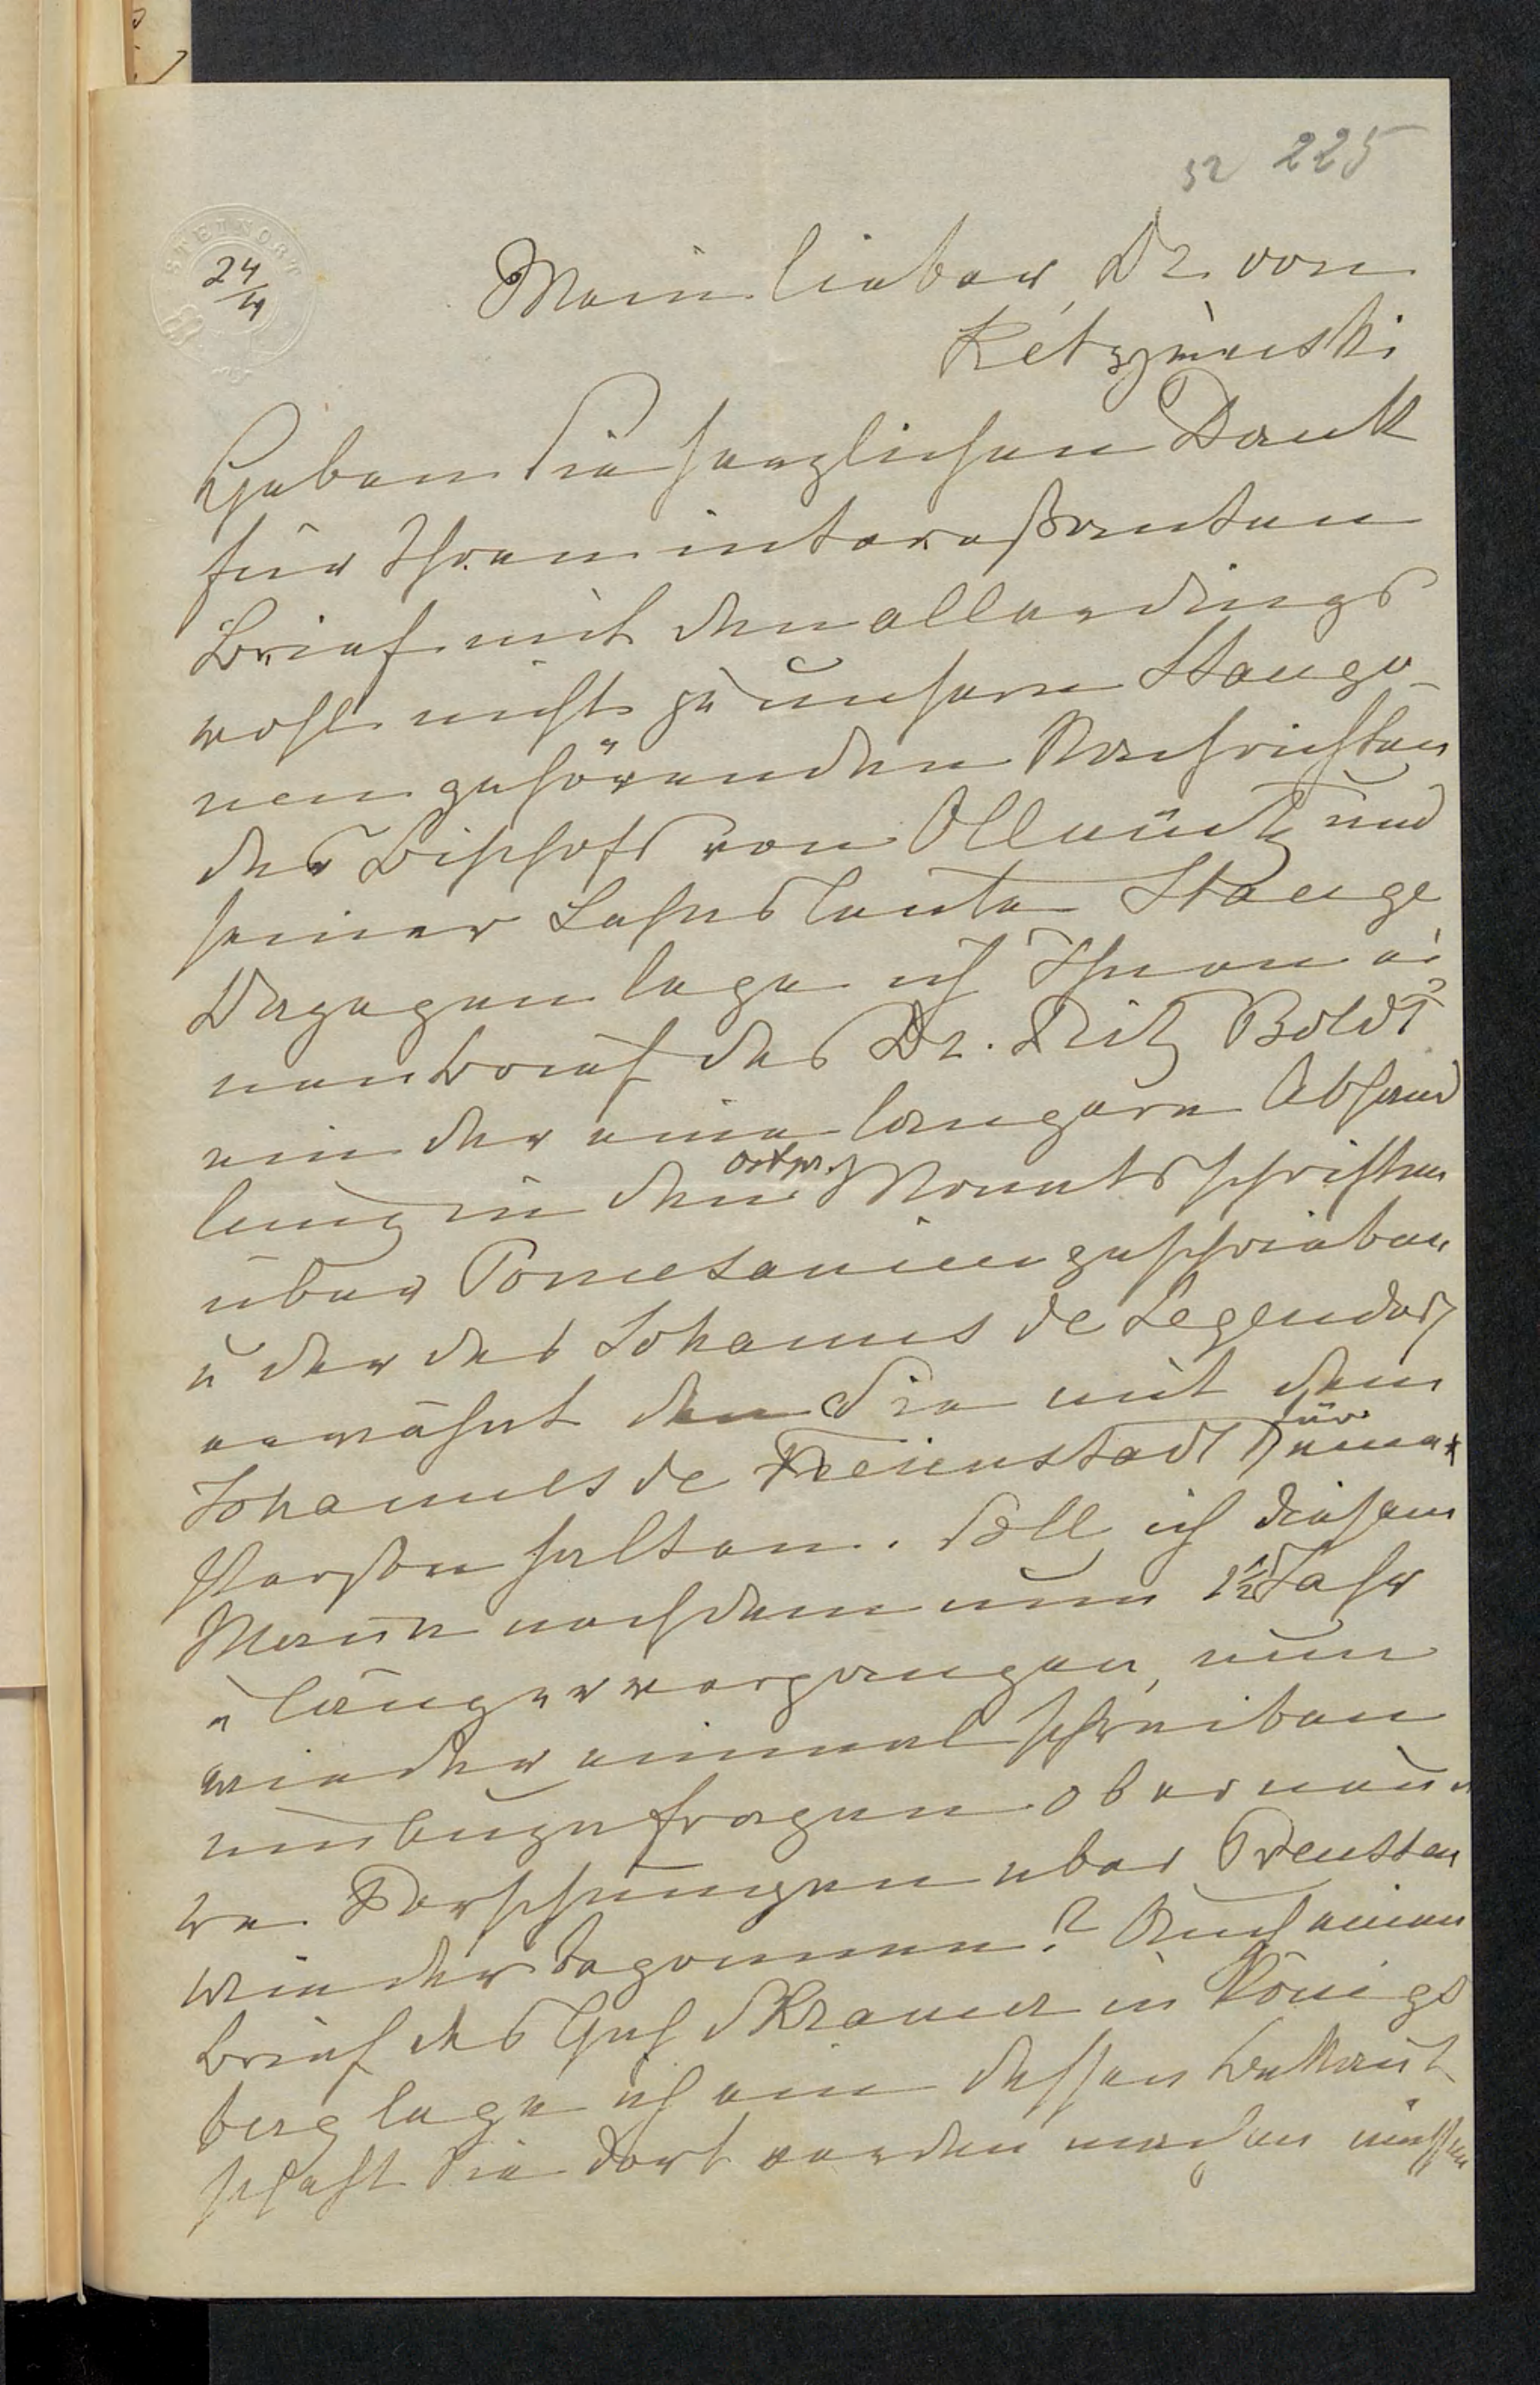 52 225
STEINORT
24/4
Mein lieber Dr. von
Kétrzyński
Haben Sie herzlichen Dank
für Ihren intereßanten
Brief mit den allerdings
wohl nicht zu unsern Stango-
nen gehörenden Nachrichten
des Bischofs von Ollmütz und
seiner Lehnsleute Stange
Dagegen lege ich Ihnen ei-
nen Brief des Dr. Fritz Boldt
ein der eine längere Abhand
lung in den ostpr. Monatsschriften
über Pomesanien geschrieben
u der des Johannes de Legendorf
erwähnt den Sie mit dem
Johannes de Freienstadt für eine
Person halten. Soll ich diesem
Mann nachdem nun 1½ Jahr
u länger vergangen, nun
wieder einmal schreiben
um anzufragen ob er neue-
re Forschungen über Preussen
wieder begonnen? Auch einen
Brief des Gus in Königs
berg lege ich ein dessen Bekannt
schaft Sie dort werden machen müssen